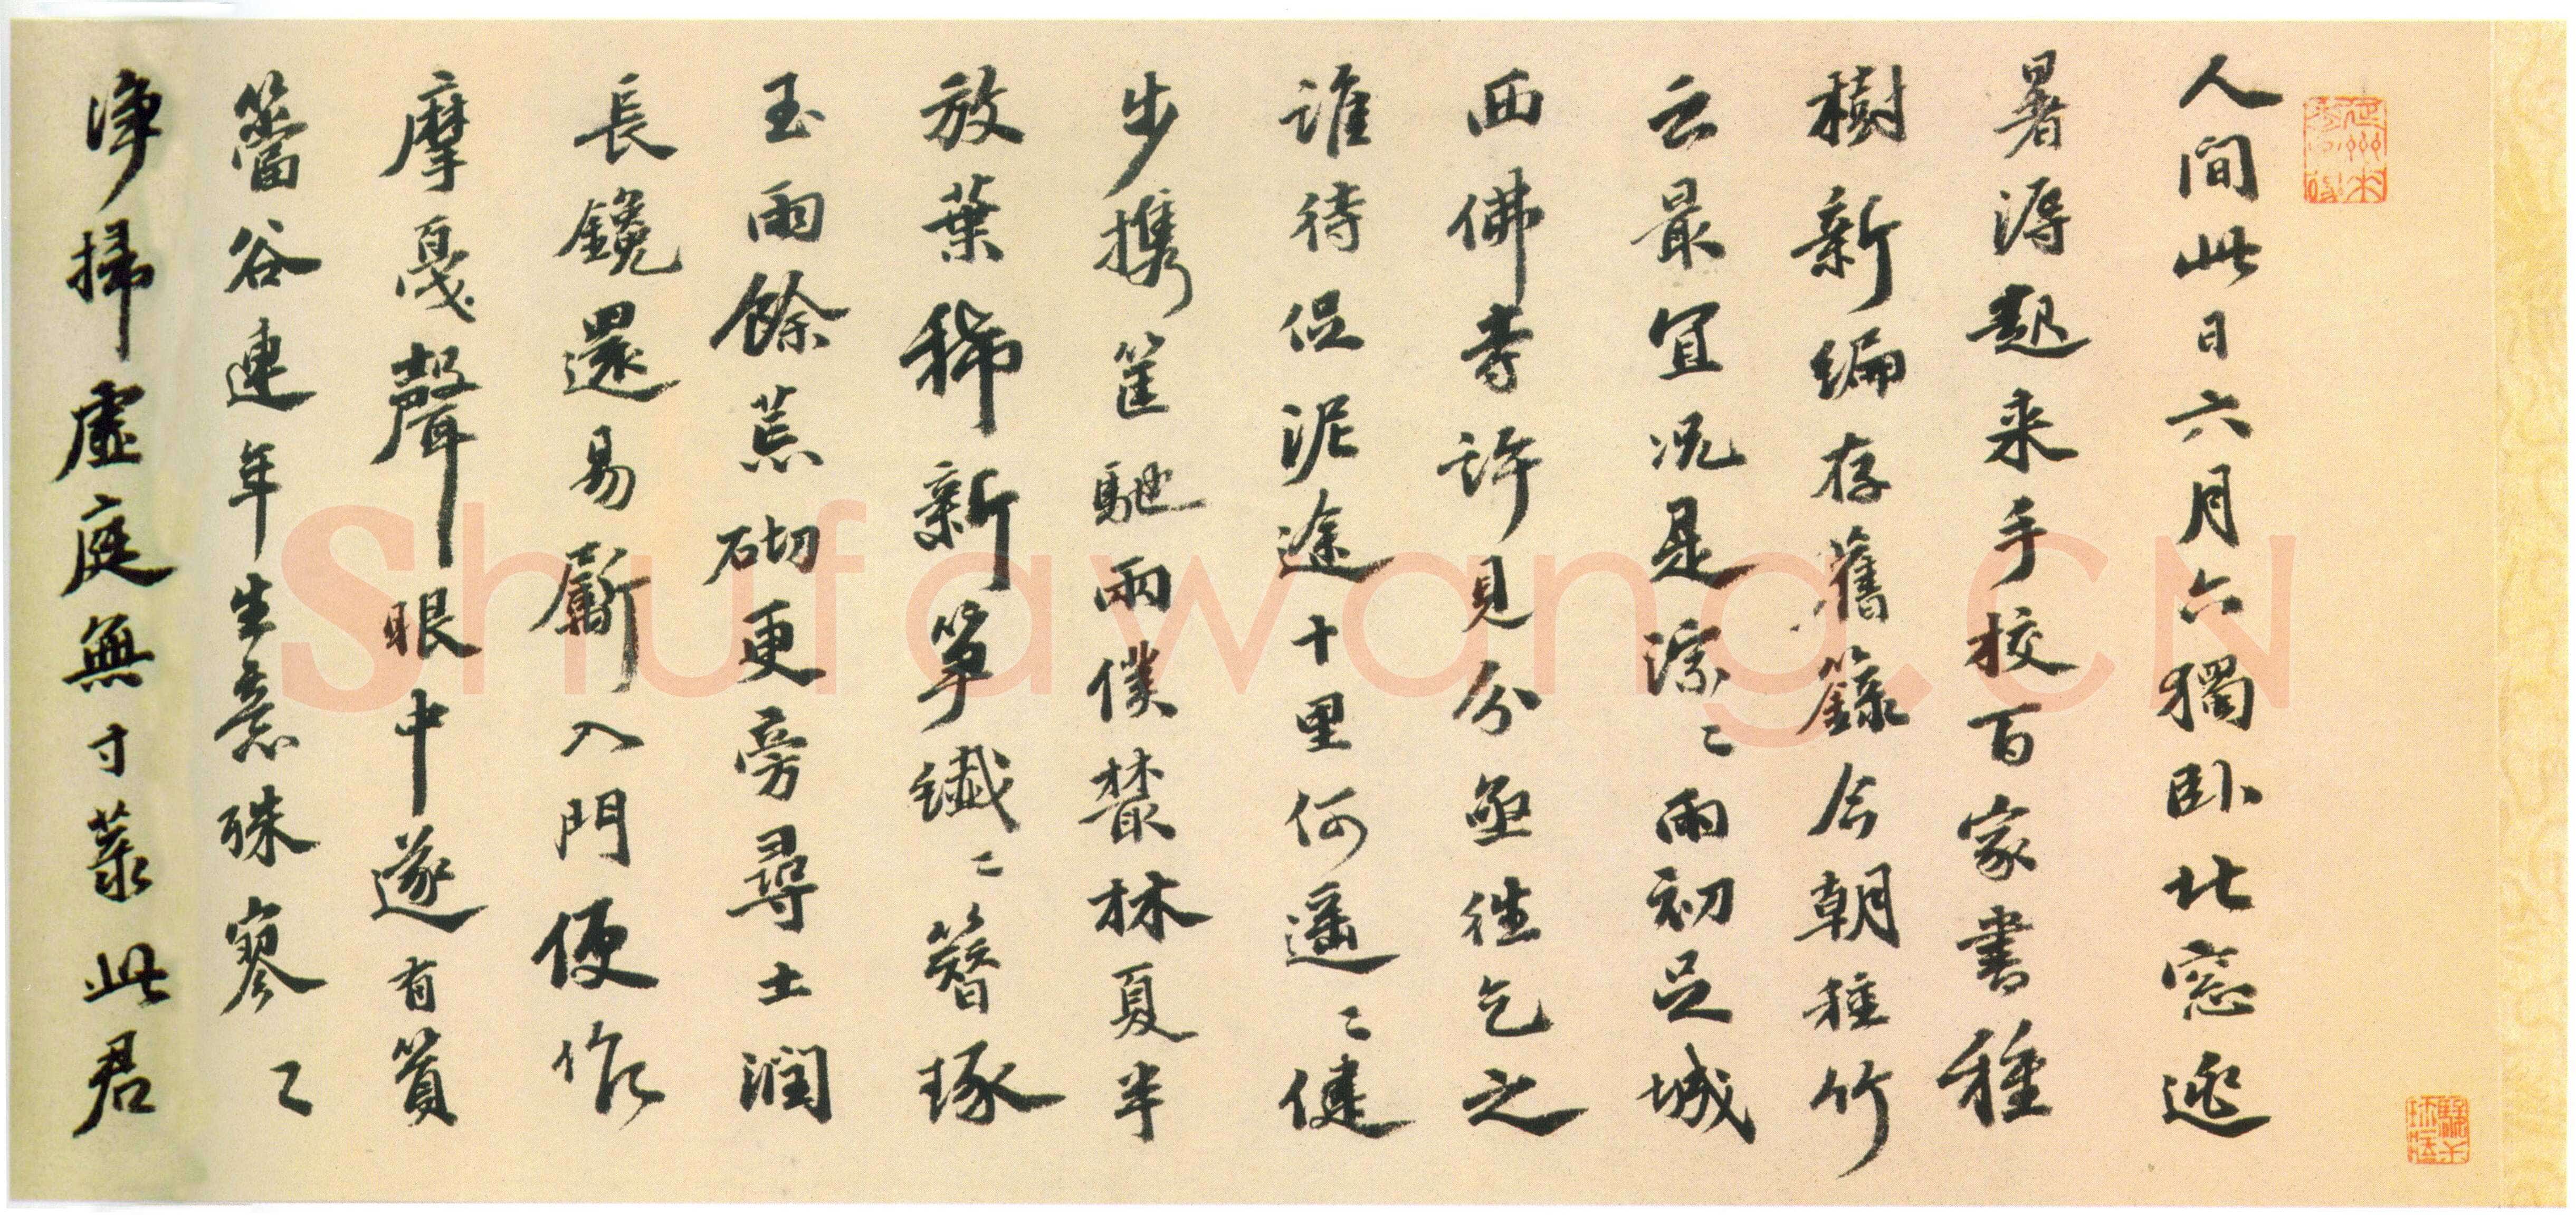 人間此日六月六獨卧北窓逃
暑溽起来手校百家書種
樹新編存舊錄今朝種竹
云最宜况是淙〻雨初足城
西佛寺許見分亟往乞之
誰待促泥途十里何遥〻健
步携筐馳兩僕叢林夏半
放葉稀新笋纖〻簪琢
玉雨餘荒砌更旁尋土潤
長鑱還易斸入門便作
摩戛聲眼中遂有篔
簹谷連年生意殊寥〻
淨掃虚庭無寸菉此君
Shufawang.CN